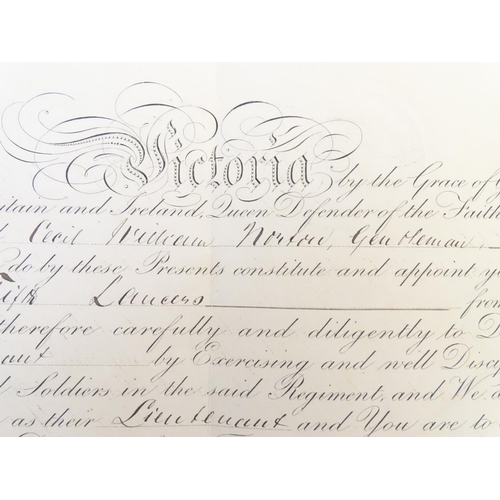 Victoria by the Grace of
itain and Ireland, Queen Defender of the Faith
Cecil William Norton, Gentleman,
do by these Presents constitute and appoint y
Fifth Lancers from
therefore carefully and diligently to D
ant by Exercising and well Disc
d Soldiers in the said Regiment, and We d
as their Lieutenant and You are to